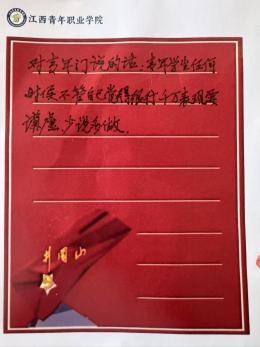 江西青年职业学院
对青年门说的话：青年学生任何
时侯不管自己觉得很行千万表现要
谦虚，少说多做，
井冈山